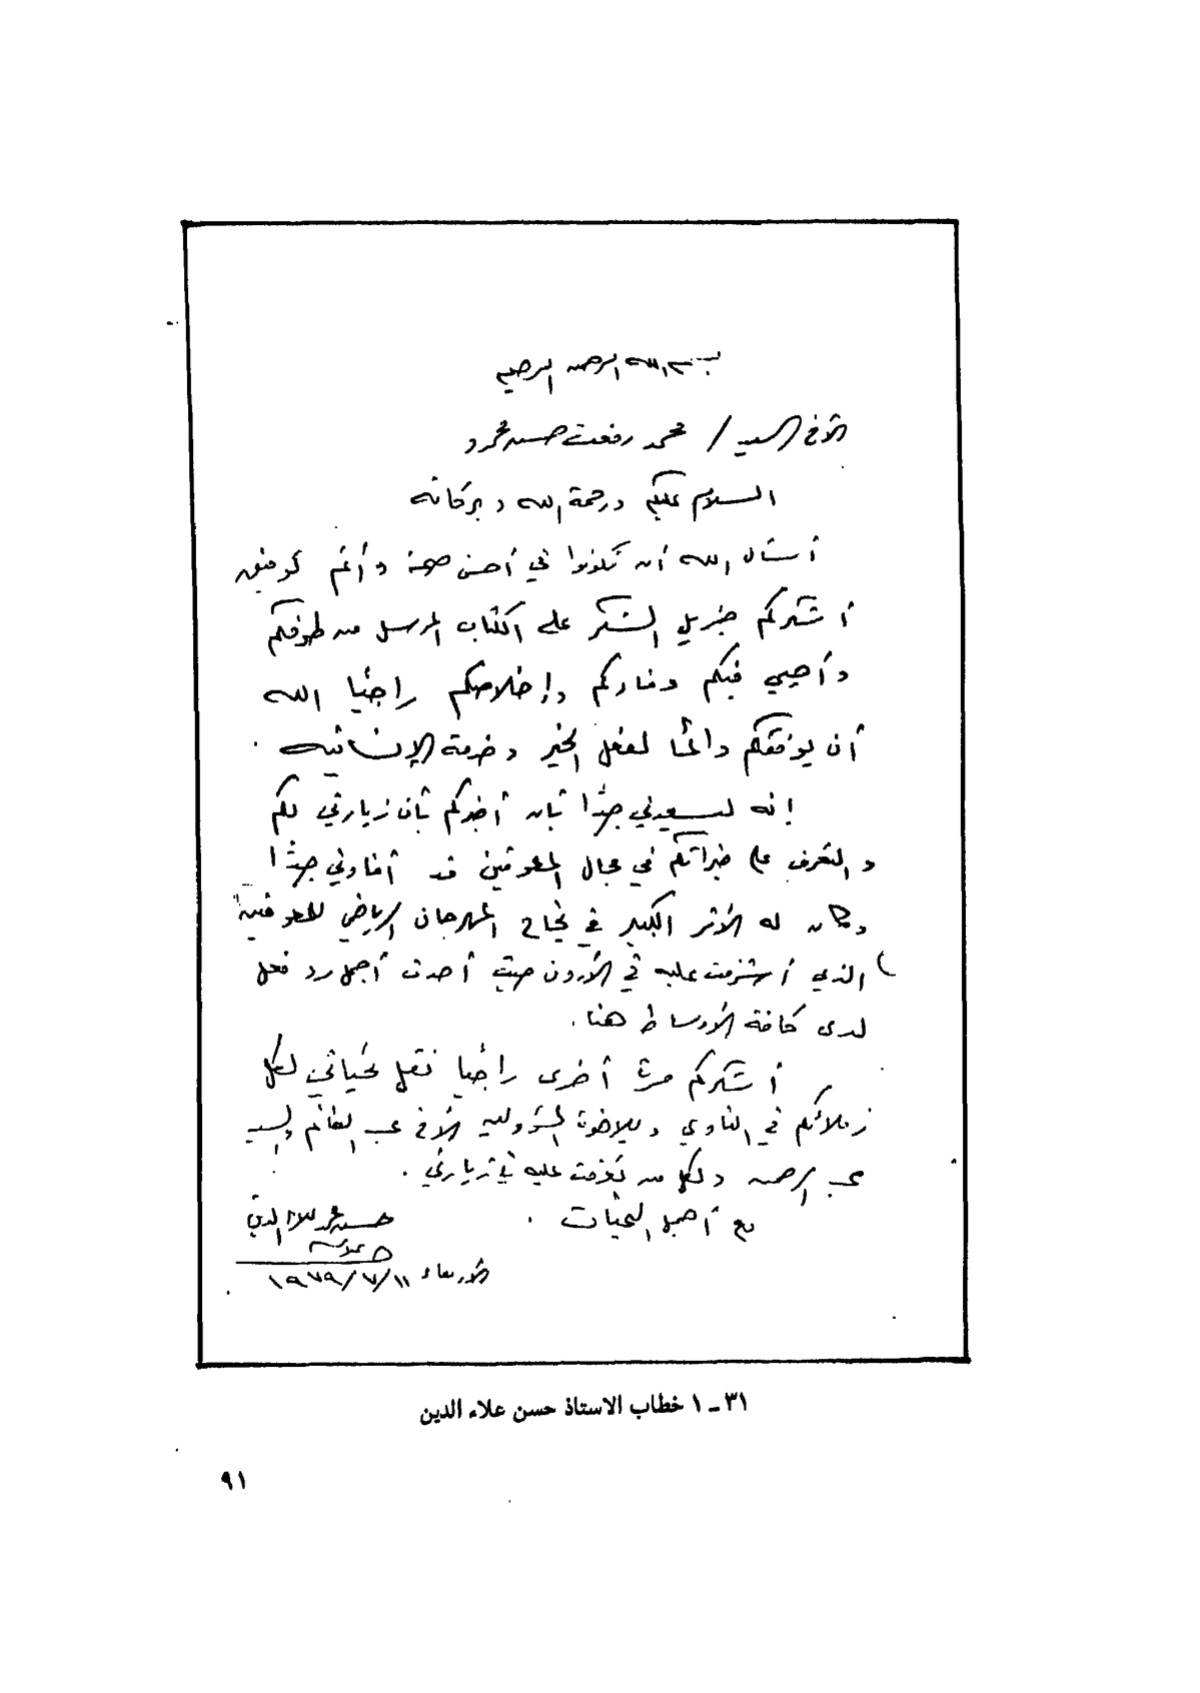 بسم الله الرحمن الرحيم
الأخ السيد / محمد رفعت حسن محمود
السلام عليكم ورحمة الله وبركاته
أسأل الله أن تكونوا في أحسن صحة وأتم توفيق
أشكركم جزيل الشكر على الكتاب المرسل من طرفكم
وأحيي فيكم وفاءكم وإخلاصكم راجيا الله
أن يوفقكم دائما لفعل الخير وخدمة الإنسانية .
إنه ليسعدني جدا بأن أخبركم بأن زيارتي لكم
والتعرف على خبراتكم في مجال المعوقين قد أفادني جدا
وكان له الأثر الكبير في نجاح المهرجان الرياضي للمعوقين
الذي أشرفت عليه في الأردن حيث أحدث أجمل رد فعل
لدى كافة الأوساط هنا .
أشكركم مرة أخرى راجيا نقل تحياتي لكل
زملائكم في النادي وللاخوة المسؤولين الأخ عبد والسيد
عبد الرحمن ولكل من تعرفت عليه في زيارتي .
مع أجمل التحيات .
حسن محمد علاء الدين
الأربعاء ١١/٧/١٩٧٩
٣١ ـ ١ خطاب الاستاذ حسن علاء الدين
٩١